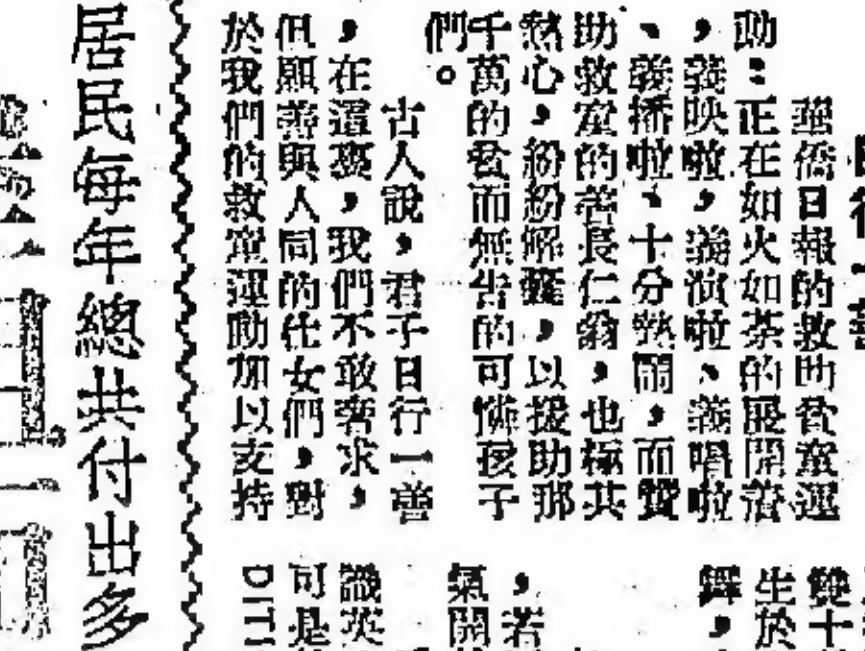 日行一善
華僑日報的救助貧童運
動：正在如火如荼的展開着
，義映啦，義演啦、義唱啦
、義播啦、十分熱鬧，而贊
助救童的善長仁翁，也極其
熱心，紛紛解囊，以援助那
千萬的貧而無告的可憐孩子
們。
古人說，君子日行一善
，在這裏，我們不敢奢求，
但願善與人同的仕女們，對
於我們的救童運動加以支持
雙十
生於
舞，
，若
氣開
識英
可是
DITI
居民每年總共付出多